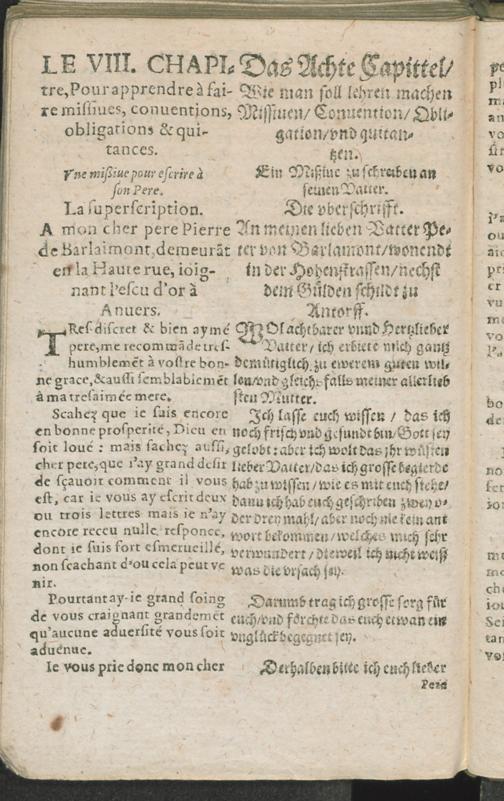 LE VIII. CHAPI-
tre, Pour apprendre à fai-
re missiues, conuentions,
obligations & qui-
tances.
Vne missiue pour escrire à
son Pere.
La superscription.
A mon cher pere Pierre
de Barlaimont, demeurāt
en la Haute rue, ioig-
nant l'escu d'or à
Anuers.
TRes-discret & bien aymé
pere, me recommāde tres-
humblemēt à vostre bon-
ne grace, & aussi semblablemēt
à ma tresaimée mere.
Scahez que ie suis encore
en bonne prosperité, Dieu en
soit loué : mais sachez aussi,
cher pere, que i'ay grand desir
de sçauoir comment il vous
est, car ie vous ay escrit deux
ou trois lettres mais ie n'ay
encore receu nulle responce,
dont ie suis fort esmerueillé,
non scachant d'ou cela peut ve
nir.
Pourtant ay-ie grand soing
de vous craignant grandemēt
qu'aucune aduersité vous soit
aduenue.
Ie vous prie donc mon cher
Das Achte Capittel/
Wie man soll lehren machen
Missiuen/ Conuention/ Obli-
gation/ vnd quitan-
tzen.
Ein Missiue zu schreiben an
seinen Vatter.
Die vberschrifft.
An meinen lieben Vatter Pe-
ter von Barlamont/ wonendt
in der Hohenstrassen/ nechst
dem Gülden schildt zu
Antorff.
WOlachtbarer vnnd Hertzlieber
Vatter/ ich erbiete mich gantz
demütiglich zu ewerem guten wil-
len/ vnd gleichsfalls meiner allerlieb
sten Mutter.
Ich lasse euch wissen / das ich
noch frisch vnd gesundt bin/ Gott sey
gelobt : aber ich wolt das jhr wüsten
lieber Vatter/ das ich grosse begierde
hab zu wissen/ wie es mit euch stehe/
dann ich hab euch geschriben zwey o-
der drey mahl/ aber noch nie kein ant
wort bekommen/ welches mich sehr
verwundert / dieweil ich nicht weiß
was die vrsach sey.
Darumb trag ich grosse sorg für
euch/ vnd förchte das euch etwan ein
vnglück begegnet sey.
Derhalben bitte ich euch lieber